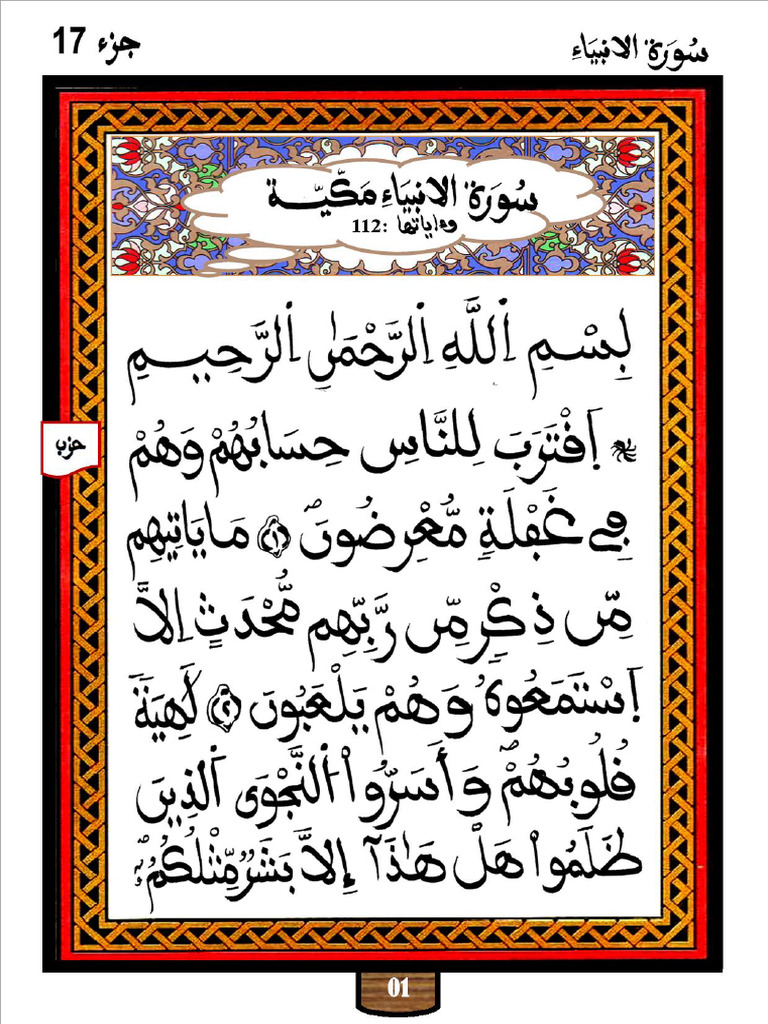 سُورَة الانبيَاءِ
جزء 17
سُورَة الانبيَاءِ مَكّيّــة
وءاياتها :112
بِسْمِ اِ۬للَّهِ اِ۬لرَّحْمَٰنِ اِ۬لرَّحِيمِ
اَ۪قْتَرَبَ لِلنَّاسِ حِسَابُهُمْ وَهُمْ
حزب
فِے غَفْلَةٖ مُّعْرِضُونَۖ ١ مَا يَاتِيهِم
مِّن ذِكْرٖ مِّن رَّبِّهِم مُّحْدَثٍ اِلاَّ
اَ۪سْتَمَعُوهُ وَهُمْ يَلْعَبُونَ ٢ لَٰهِيَةٗ
قُلُوبُهُمْۖ وَأَسَرُّواْ اُ۬لنَّجْوَي اَ۬لذِينَ
ظَلَمُواْ هَلْ هَٰذَآ إِلاَّ بَشَرٞ مِّثْلُكُمُۥٓ
01